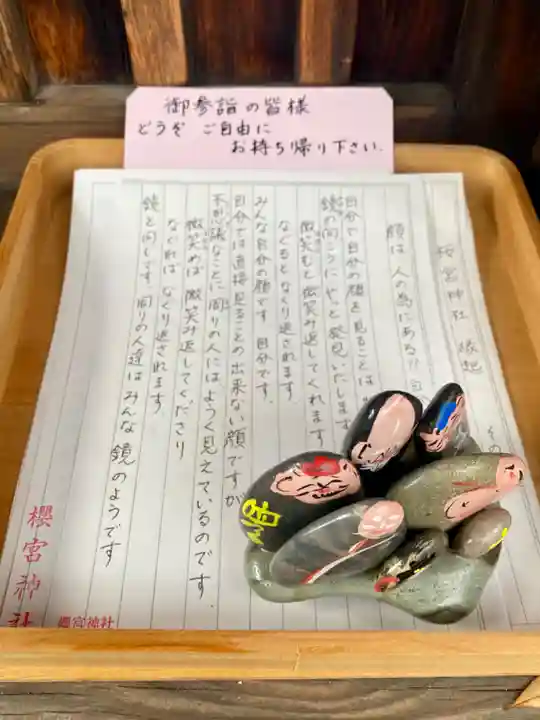 御参詣の皆様
どうぞ ご自由に
お持ち帰り下さい。
桜宮神社 縁起
顔は 人の為にある!!
自分で自分の顔を見ることは
鏡の向こうにやっと発見いたします
微笑むと微笑み返してくれます
なぐるとなぐり返されます
みんな自分の顔です 自分です。
自分では直接見ることの出来ない顔ですが
不思議なことに周りの人にはようく見えているのです。
微笑めば 微笑み返してくださり
なぐれば なぐり返されます
鏡と同じです。周りの人達はみんな鏡のようです
櫻宮神社
櫻宮神社